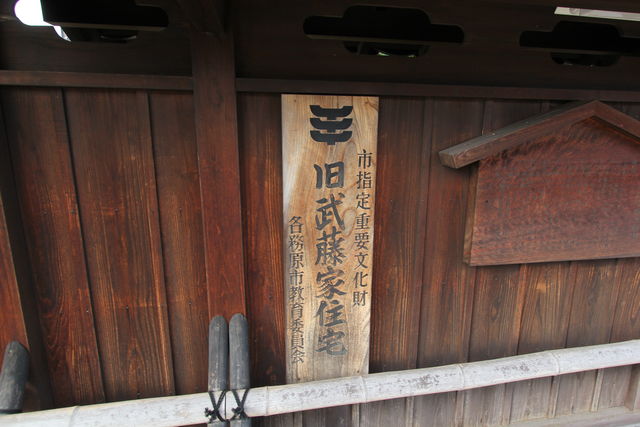 市指定重要文化財
旧武藤家住宅
各務原市教育委員会